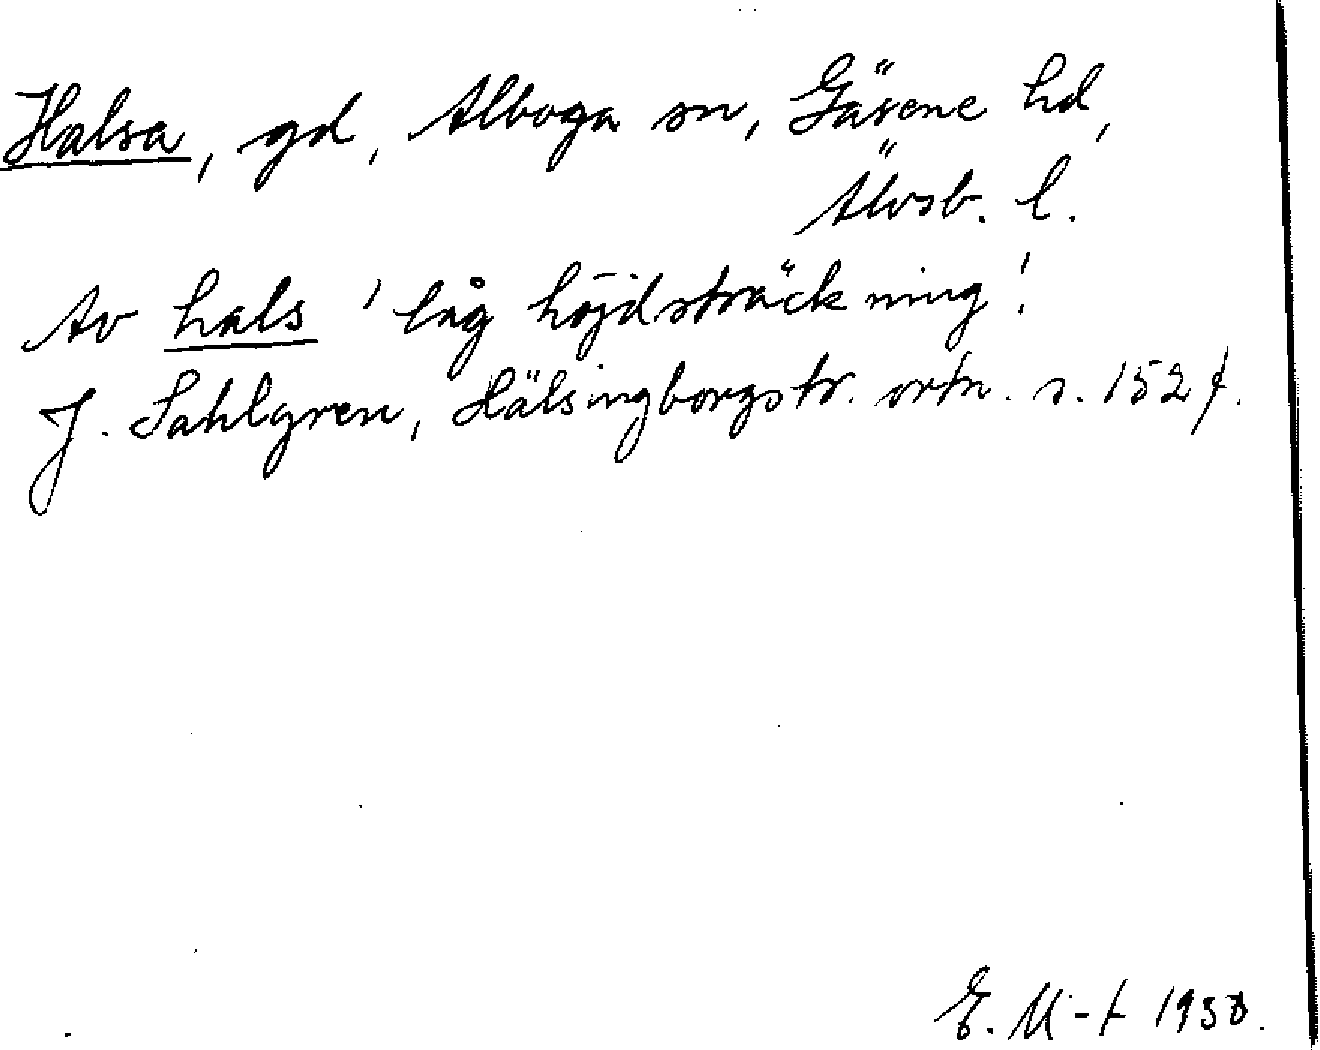 Halsa, gd, Alboga sn, Gäsene hd,
Älvsb. l.
Av hals 'låg höjdsträckning'.
J. Sahlgren, Hälsingborgstr. ortn. s. 152 f.
E. M-t 1930.